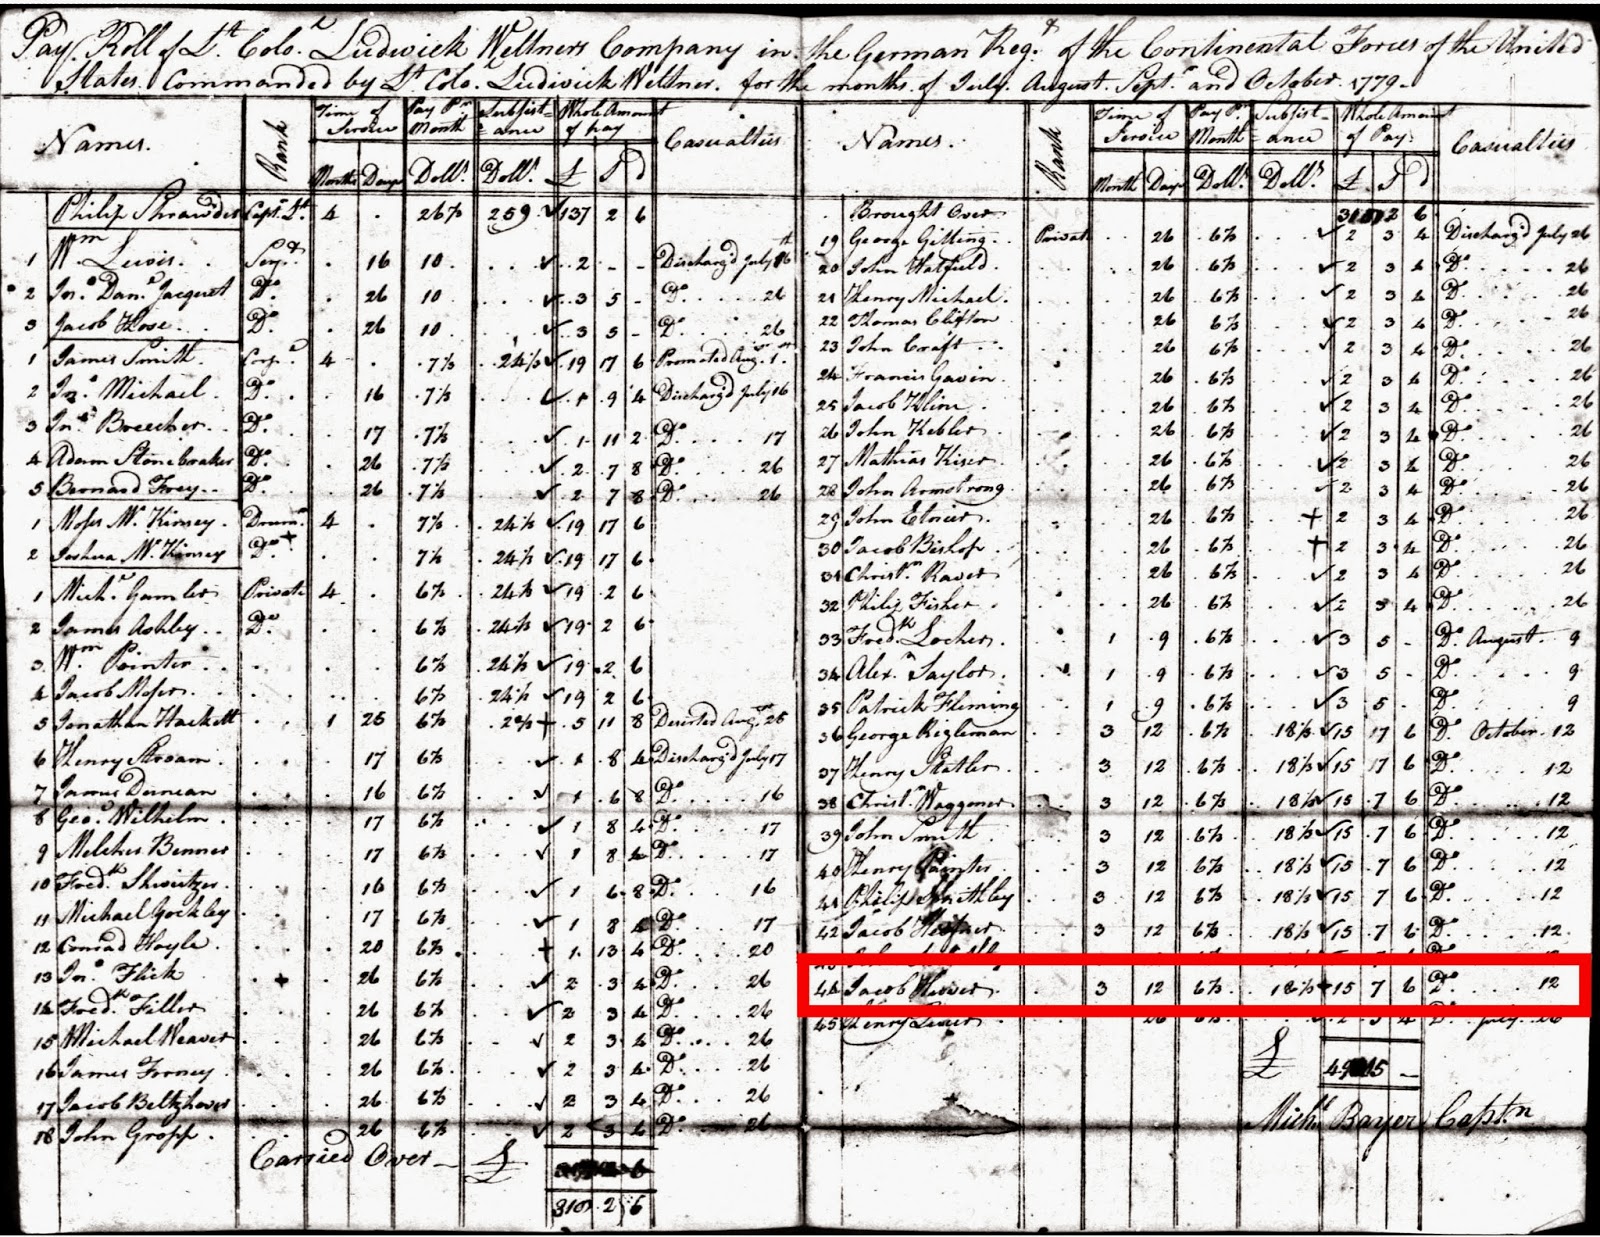 Pay Roll of Lt. Colo. Ludwick Weltners Company in the German Regt. of the Continental Forces of the United
States Commanded by Lt. Colo. Ludwick Weltner. for the months of July. August. Sept. and October. 1779
Names. Rank Time of Service Pay Pr. Month Subsist-ance Whole Amount of pay Casualties
Months Days Dolls. Dolls. £ S d
Philip Shrawder Capt. Lt. 4 . 26⅔ 259 137 2 6
1 Wm Lewis Serjt. 16 10 2 - - Discharg'd July 16th
2 Jno. Danl. Jacquet Do. 26 10 3 5 - Do. 26
3 Jacob Hose Do. 26 10 3 5 - Do. 26
1 James Smith Corpl. 4 . 7⅓ 24⅓ 19 17 6 Promoted Augt. 1st
2 Jno. Michael Do. 16 7⅓ 1 9 4 Discharg'd July 16
3 Jno. Breecher Do. 17 7⅓ 1 11 2 Do. 17
4 Adam Stonebraker Do. 26 7⅓ 2 7 8 Do. 26
5 Bernard Frey Do. 26 7⅓ 2 7 8 Do. 26
1 Moses Mc. Kinsey Drumr. 4 . 7⅓ 24⅓ 19 17 6
2 Joshua Mc. Kinsey Do. 7⅓ 24⅓ 19 17 6
1 Michl. Gambler Private 4 . 6⅔ 24⅓ 19 2 6
2 James Ashley Do. 6⅔ 24⅓ 19 2 6
3 Wm Pointer 6⅔ 24⅓ 19 2 6
4 Jacob Moser 6⅔ 24⅓ 19 2 6
5 Jonathan Hackett 1 25 6⅔ 5 11 8 Deserted Augt. 25
6 Henry Stroam 17 6⅔ 1 8 4 Discharg'd July 17
7 James Duncan 16 6⅔ 1 6 8 Do. 16
8 Geo. Wilhelm 17 6⅔ 1 8 4 Do. 17
9 Melcher Benner 17 6⅔ 1 8 4 Do. 17
10 Fredk. Shwitzer 16 6⅔ 1 6 8 Do. 16
11 Michael Gockley 17 6⅔ 1 8 4 Do. 17
12 Conrad Hoyle 20 6⅔ 1 13 4 Do. 20
13 Jno. Flick 26 6⅔ 2 3 4 Do. 26
14 Fredk. Filler 26 6⅔ 2 3 4 Do. 26
15 Michael Weaver 26 6⅔ 2 3 4 Do. 26
16 James Forney 26 6⅔ 2 3 4 Do. 26
17 Jacob Beltzhover 26 6⅔ 2 3 4 Do. 26
18 John Gropp 26 6⅔ 2 3 4 Do. 26
Carried Over £
310 2 6
Names. Rank Time of Service Pay Pr. Month Subsist-ance Whole Amount of Pay. Casualties
Months Days Dolls. Dolls. £ S d
Brought Over 2 6
19 George Gitting Private 26 6⅔ 2 3 4 Discharg'd July 26
20 John Hatfield 26 6⅔ 2 3 4 Do. 26
21 Henry Michael 26 6⅔ 2 3 4 Do. 26
22 Thomas Clifton 26 6⅔ 2 3 4 Do. 26
23 John Craft 26 6⅔ 2 3 4 Do. 26
24 Francis Gavin 26 6⅔ 2 3 4 Do. 26
25 Jacob Kline 26 6⅔ 2 3 4 Do. 26
26 John Kebler 26 6⅔ 2 3 4 Do. 26
27 Mathias Kiser 26 6⅔ 2 3 4 Do. 26
28 John Armstrong 26 6⅔ 2 3 4 Do. 26
29 John Etnier 26 6⅔ 2 3 4 Do. 26
30 Jacob Bishop 26 6⅔ 2 3 4 Do. 26
31 Christn. Raver 26 6⅔ 2 3 4 Do. 26
32 Philip Fisher 26 6⅔ 2 3 4 Do. 26
33 Fredk. Locher 1 9 6⅔ 3 5 - Do. August 9
34 Alexr. Saylor 1 9 6⅔ 3 5 - Do. 9
35 Patrick Fleming 1 9 6⅔ 3 5 - Do. 9
36 George Rigleman 3 12 6⅔ 18⅓ 15 17 6 Do. October 12
37 Henry Statler 3 12 6⅔ 18⅓ 15 17 6 Do. 12
38 Christn. Waggoner 3 12 6⅔ 18⅓ 15 7 6 Do. 12
39 John Smith 3 12 6⅔ 18⅓ 15 7 6 Do. 12
40 Henry Painter 3 12 6⅔ 18⅓ 15 7 6 Do. 12
41 Philip Smithley 3 12 6⅔ 18⅓ 15 7 6 Do. 12
42 Jacob 3 12 6⅔ 18⅓ 15 7 6 Do. 12
44 Jacob 3 12 6⅔ 18⅓ 15 7 6 Do. 12
45 Henry 26 6⅔ 2 3 4 Do. July 26
£ 15 -
Michl. Bayer Captn